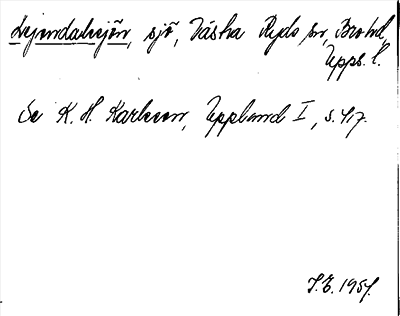 sjö, Västra Ryds sn, Bro hd,
Upps. l.
Se K. H. Karlsson, Uppland I, s. 417.
1951.